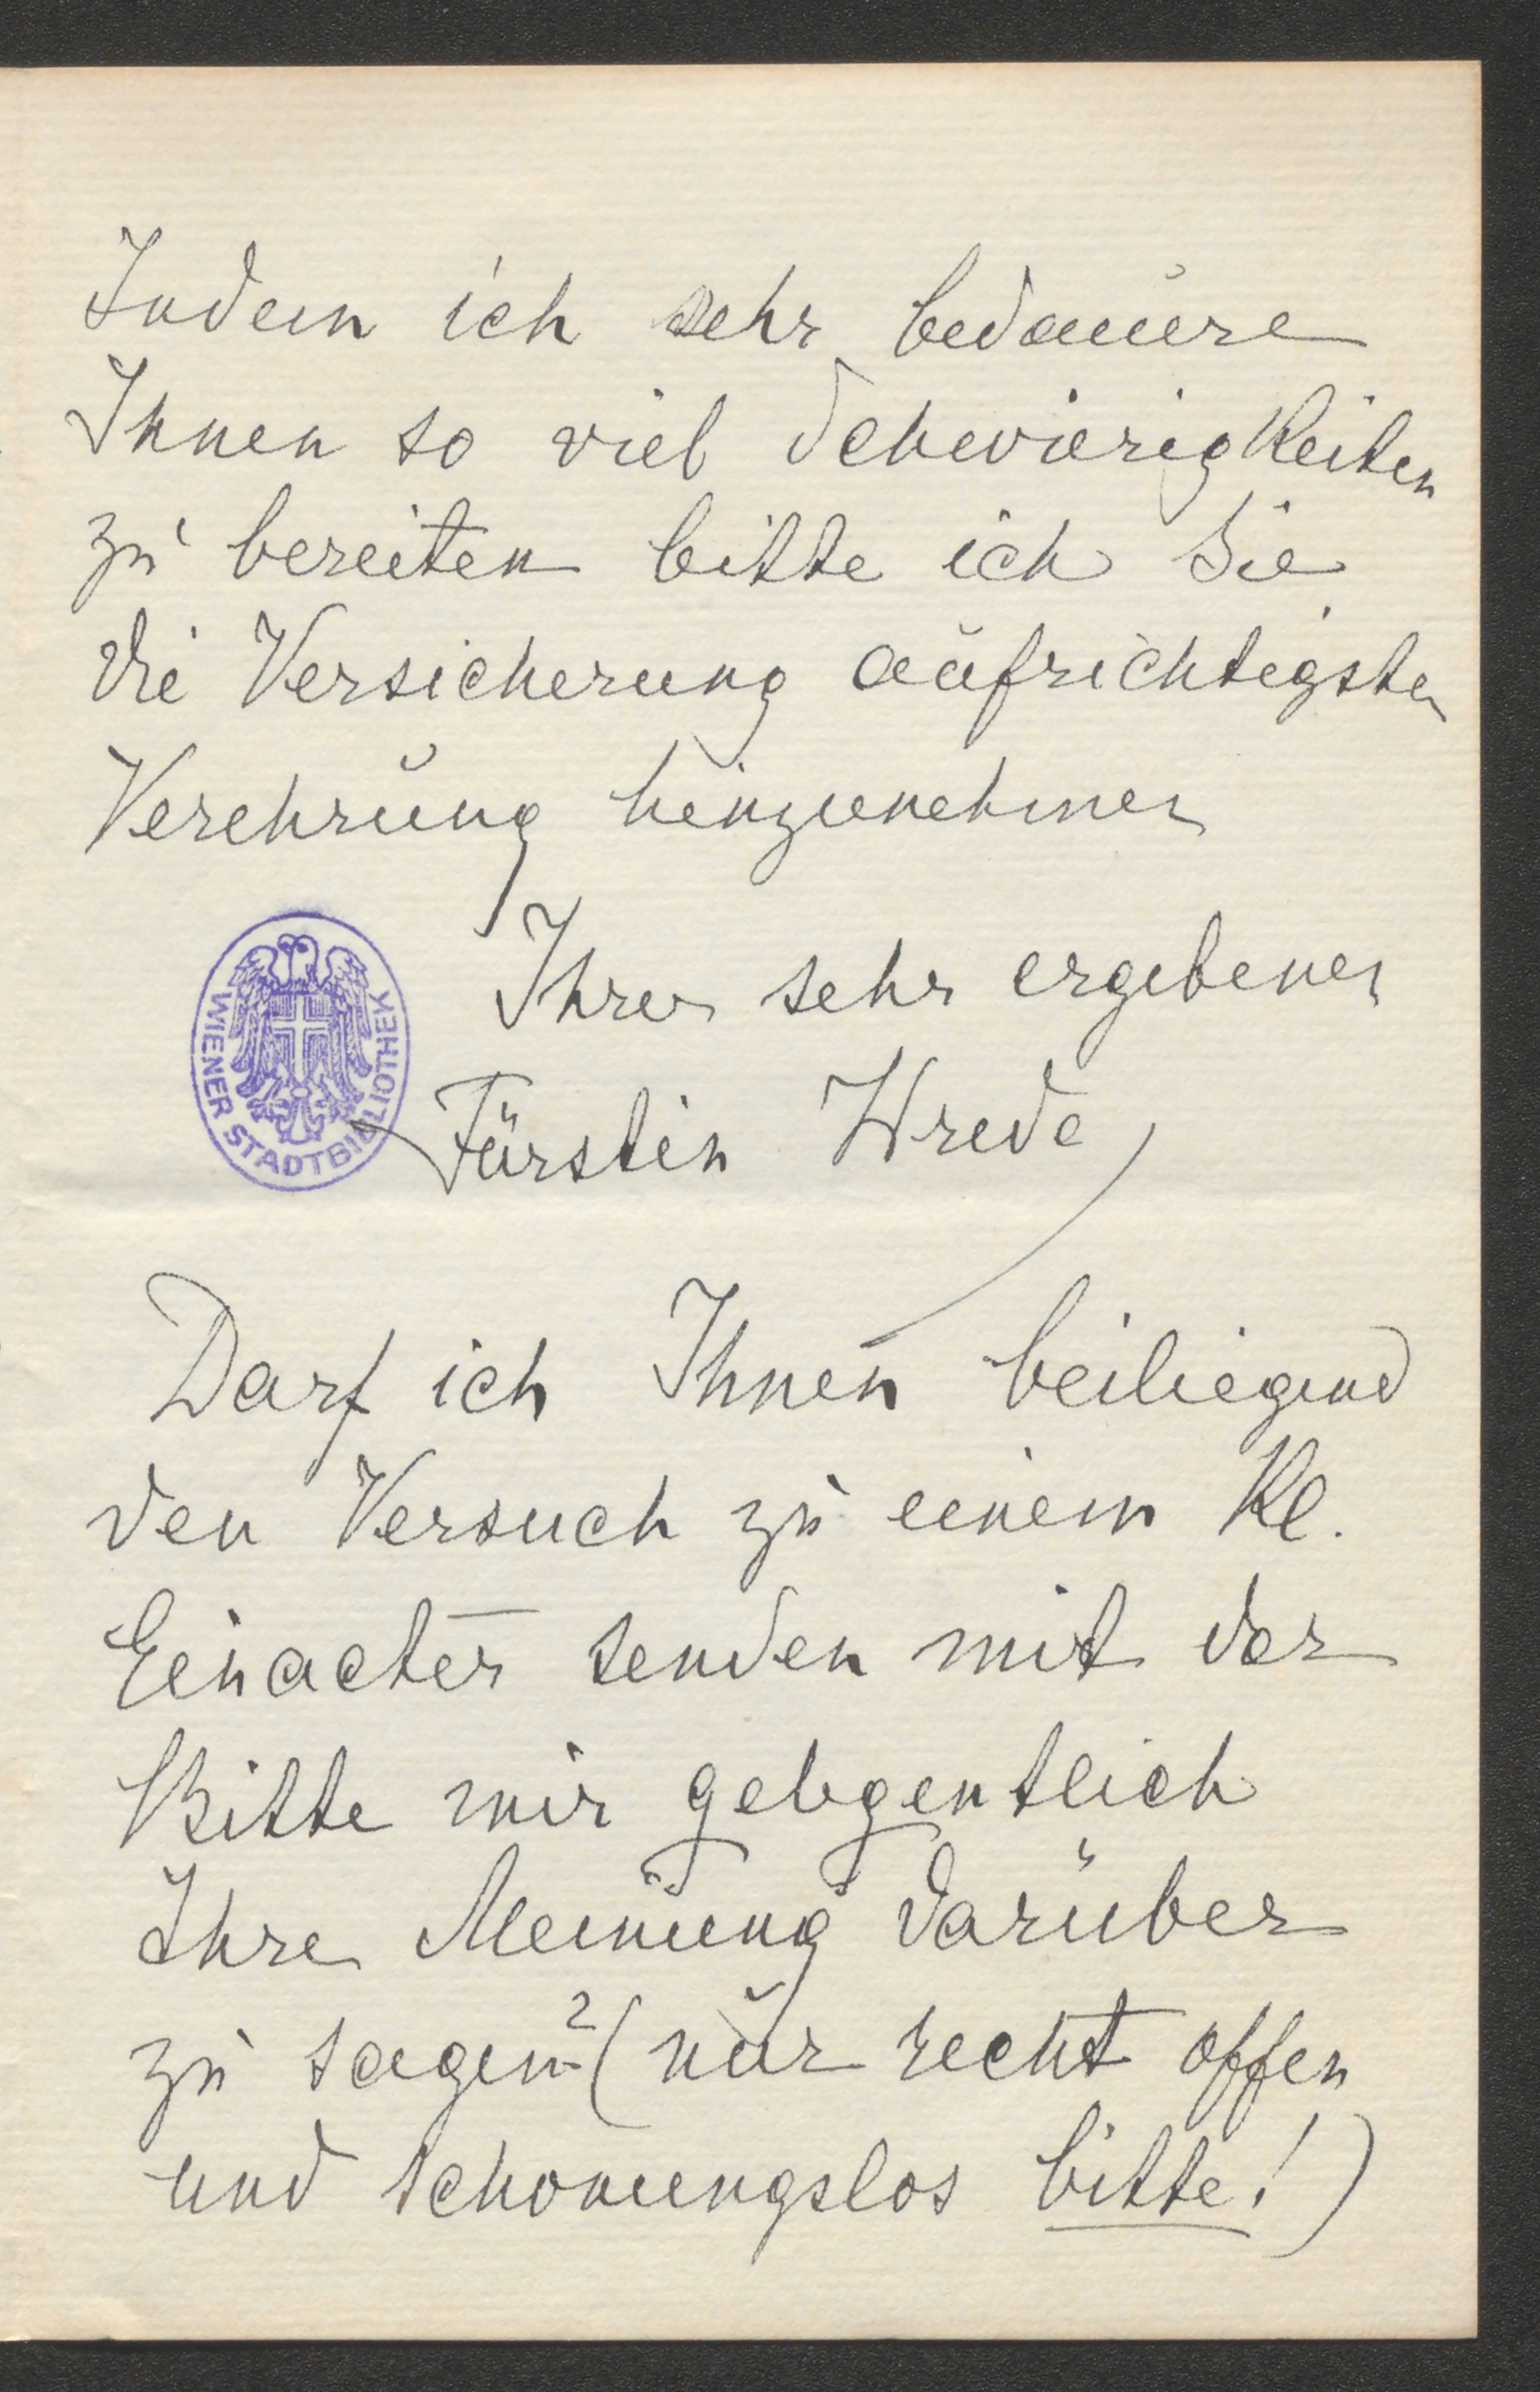 Indem ich sehr bedauere
Ihnen so viel Schwierigkeiten
zu bereiten bitte ich Sie
die Versicherung aufrichtigster
Verehrung hinzunehmen
Ihrer sehr ergebenen
Fürstin Wrede
WIENER STADTBIBLIOTHEK
Darf ich Ihnen beiliegend
den Versuch zu einem kl.
Einacter senden mit der
Bitte mir gelegentlich
Ihre Meinung darüber
zu sagen? (nur recht offen
und schonungslos bitte!)